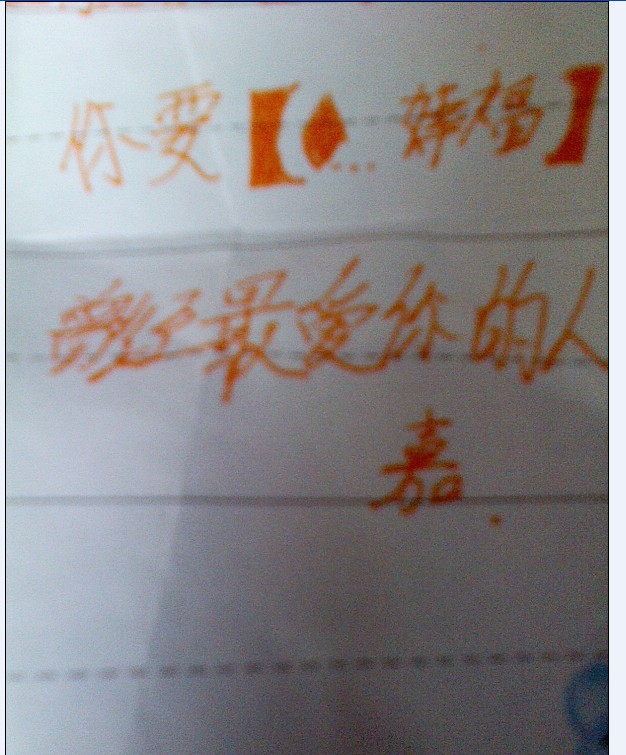 你要【♦...婞福】
曾经最爱你的人
嘉.